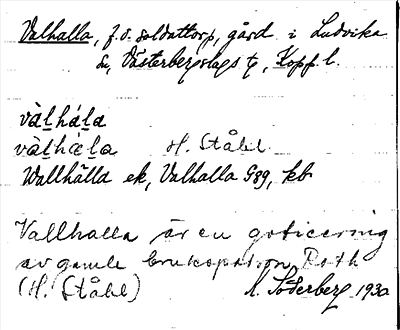 Valhalla, f.d. soldattorp, gård i Ludvika
sn, Västerbergslags tg, Kopf. l.
vàḻhála
vàḻhǽla H. Ståhl
Wallhälla ek, Valhalla G89, kb
Vallhalla är en goticering
av gamle brukspatron Roth
(H. Ståhl) A. Söderberg 1930